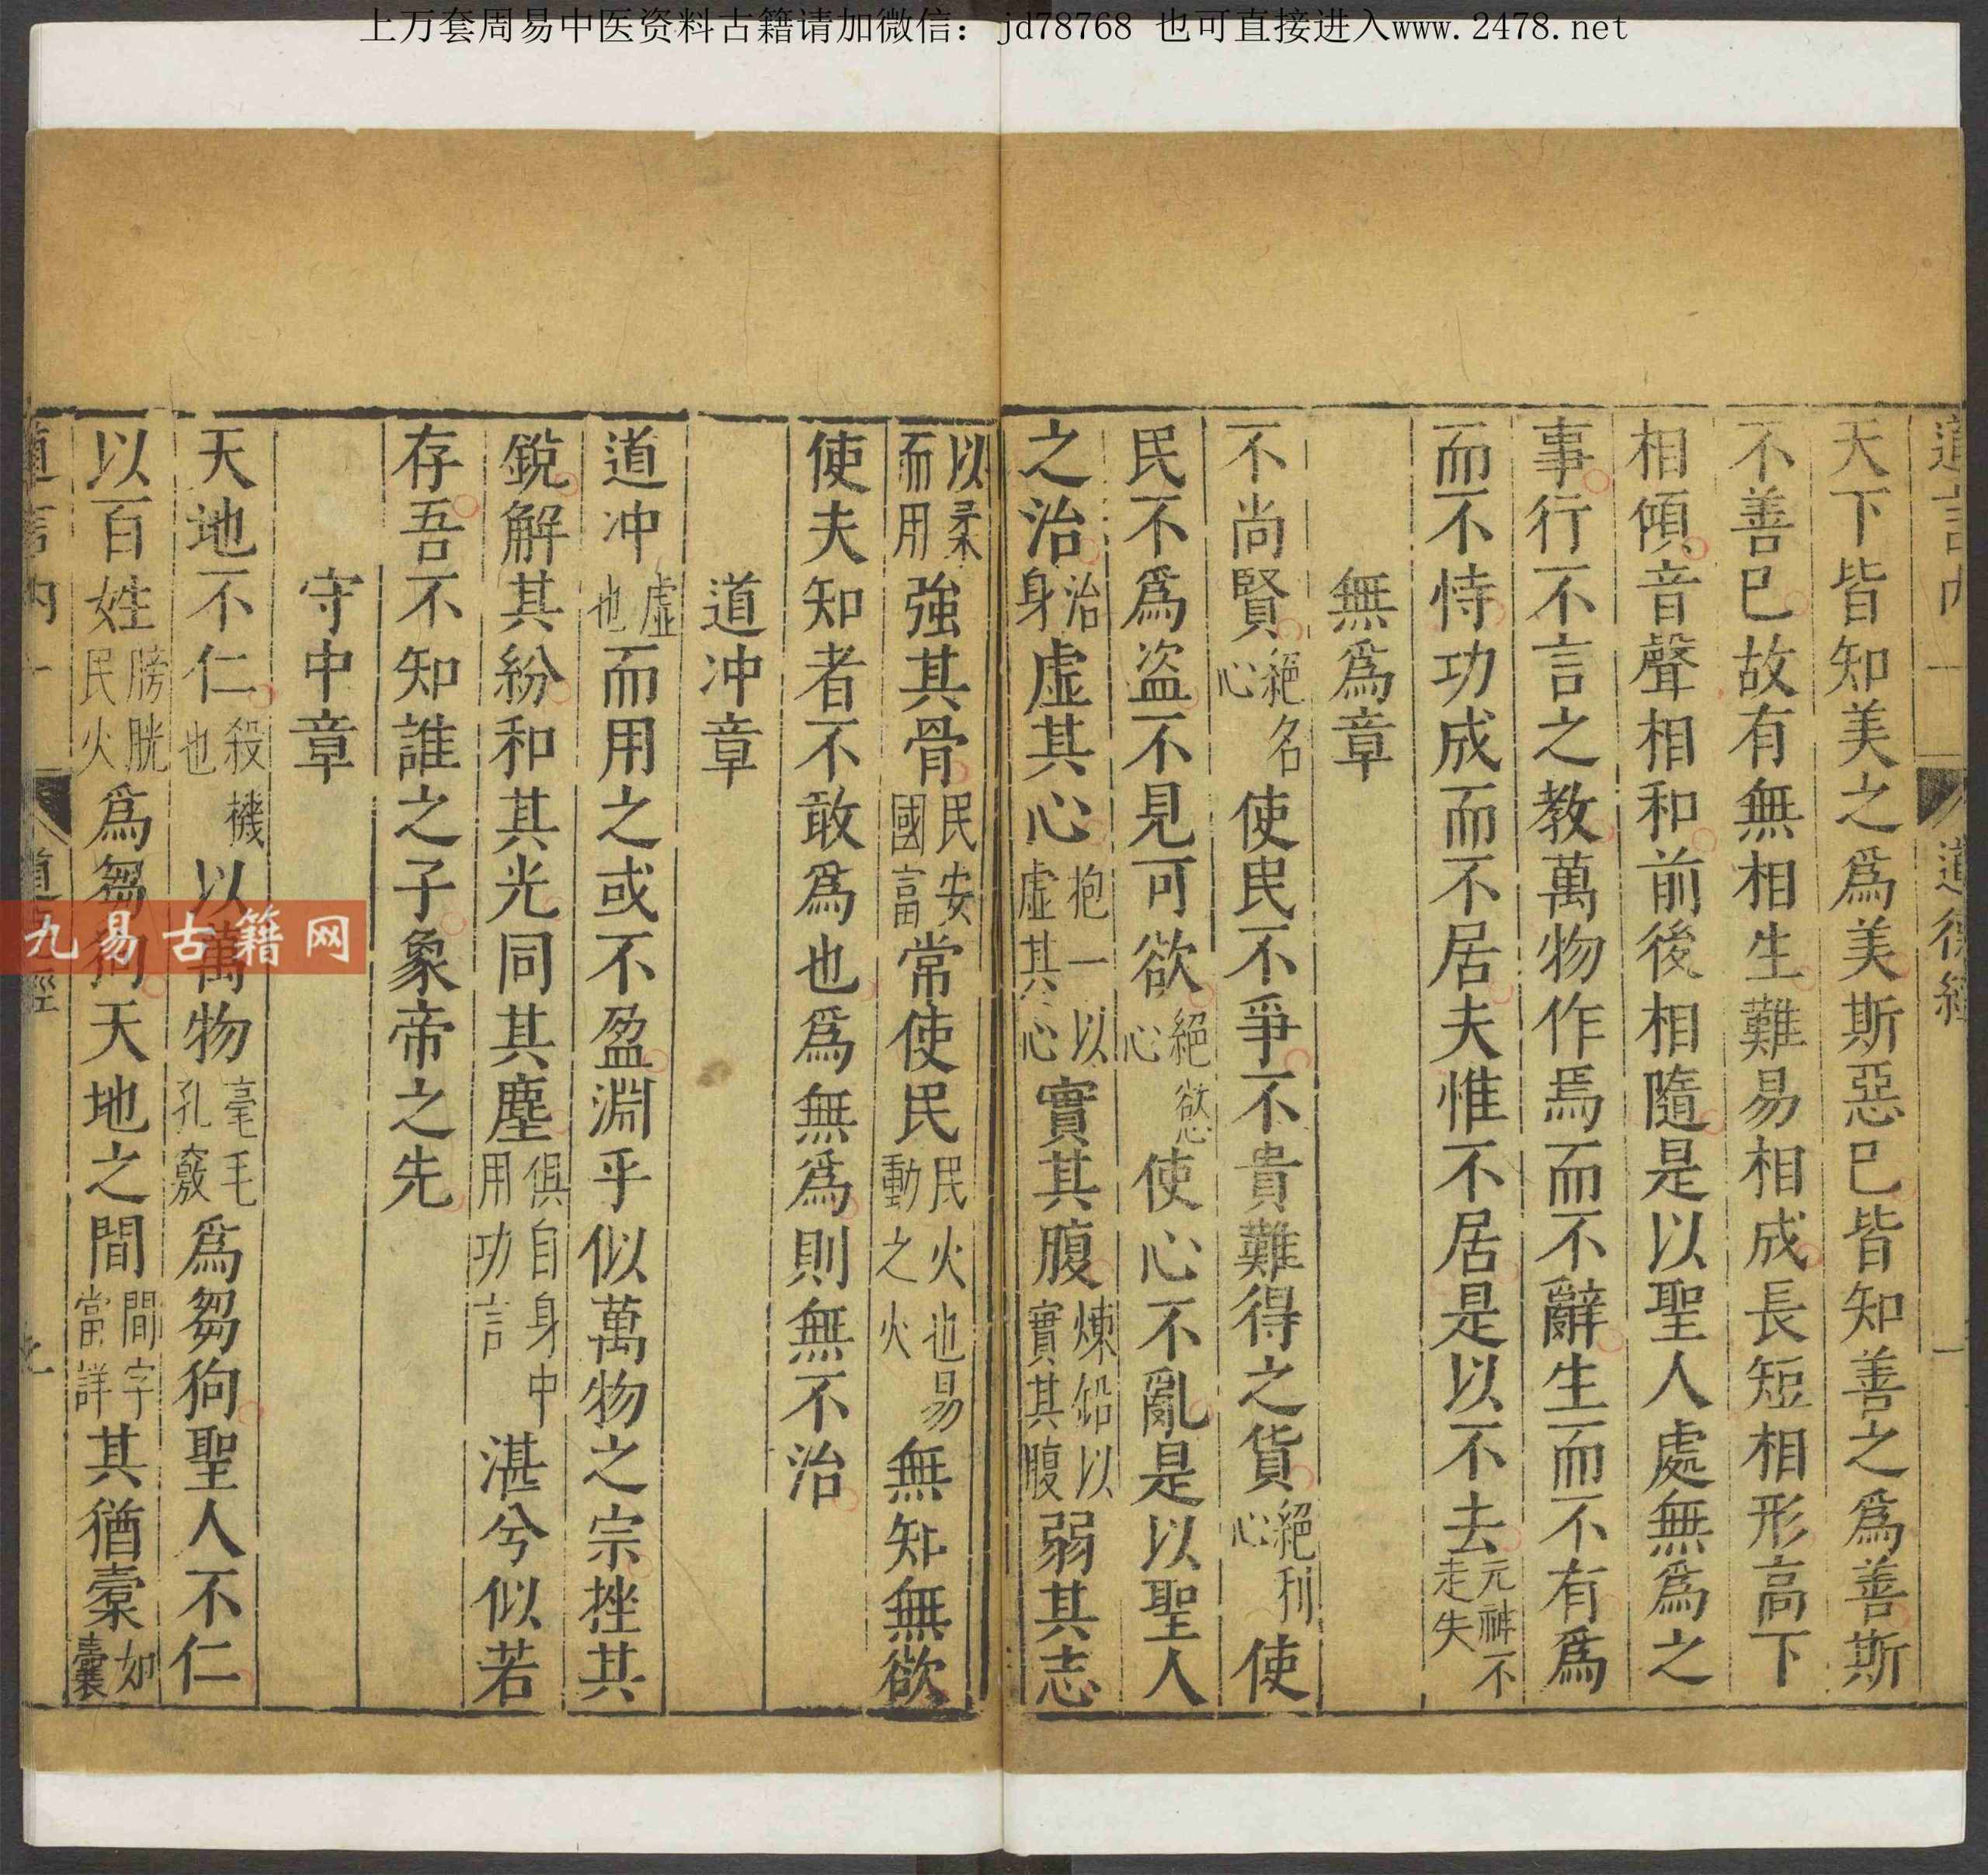 上万套周易中医资料古籍请加微信：jd78768 也可直接进入www.2478.net
道言内 一 道德經 一
天下皆知美之爲美斯惡巳皆知善之爲善斯
不善巳故有無相生難易相成長短相形高下
相傾音聲相和前後相隨是以聖人處無爲之
事行不言之教萬物作焉而不辭生而不有爲
而不恃功成而不居夫惟不居是以不去元神不走失
無爲章
不尚賢絕名心使民不爭不貴難得之貨絕利心使
民不爲盜不見可欲絕慾心使心不亂是以聖人
之治治身虛其心抱一以虛其心實其腹煉鉛以實其腹弱其志
以柔而用強其骨民安國富常使民民火也易動之火無知無欲
使夫知者不敢爲也爲無爲則無不治
道冲章
道冲虛也而用之或不盈淵乎似萬物之宗挫其
銳解其紛和其光同其塵俱自身中用功言湛兮似若
存吾不知誰之子象帝之先
守中章
天地不仁殺機也以萬物毫毛孔竅爲芻狗聖人不仁
以百姓膀胱民火爲芻狗天地之間間字當詳其猶橐如囊
道言内 一 道 經
九易古籍网